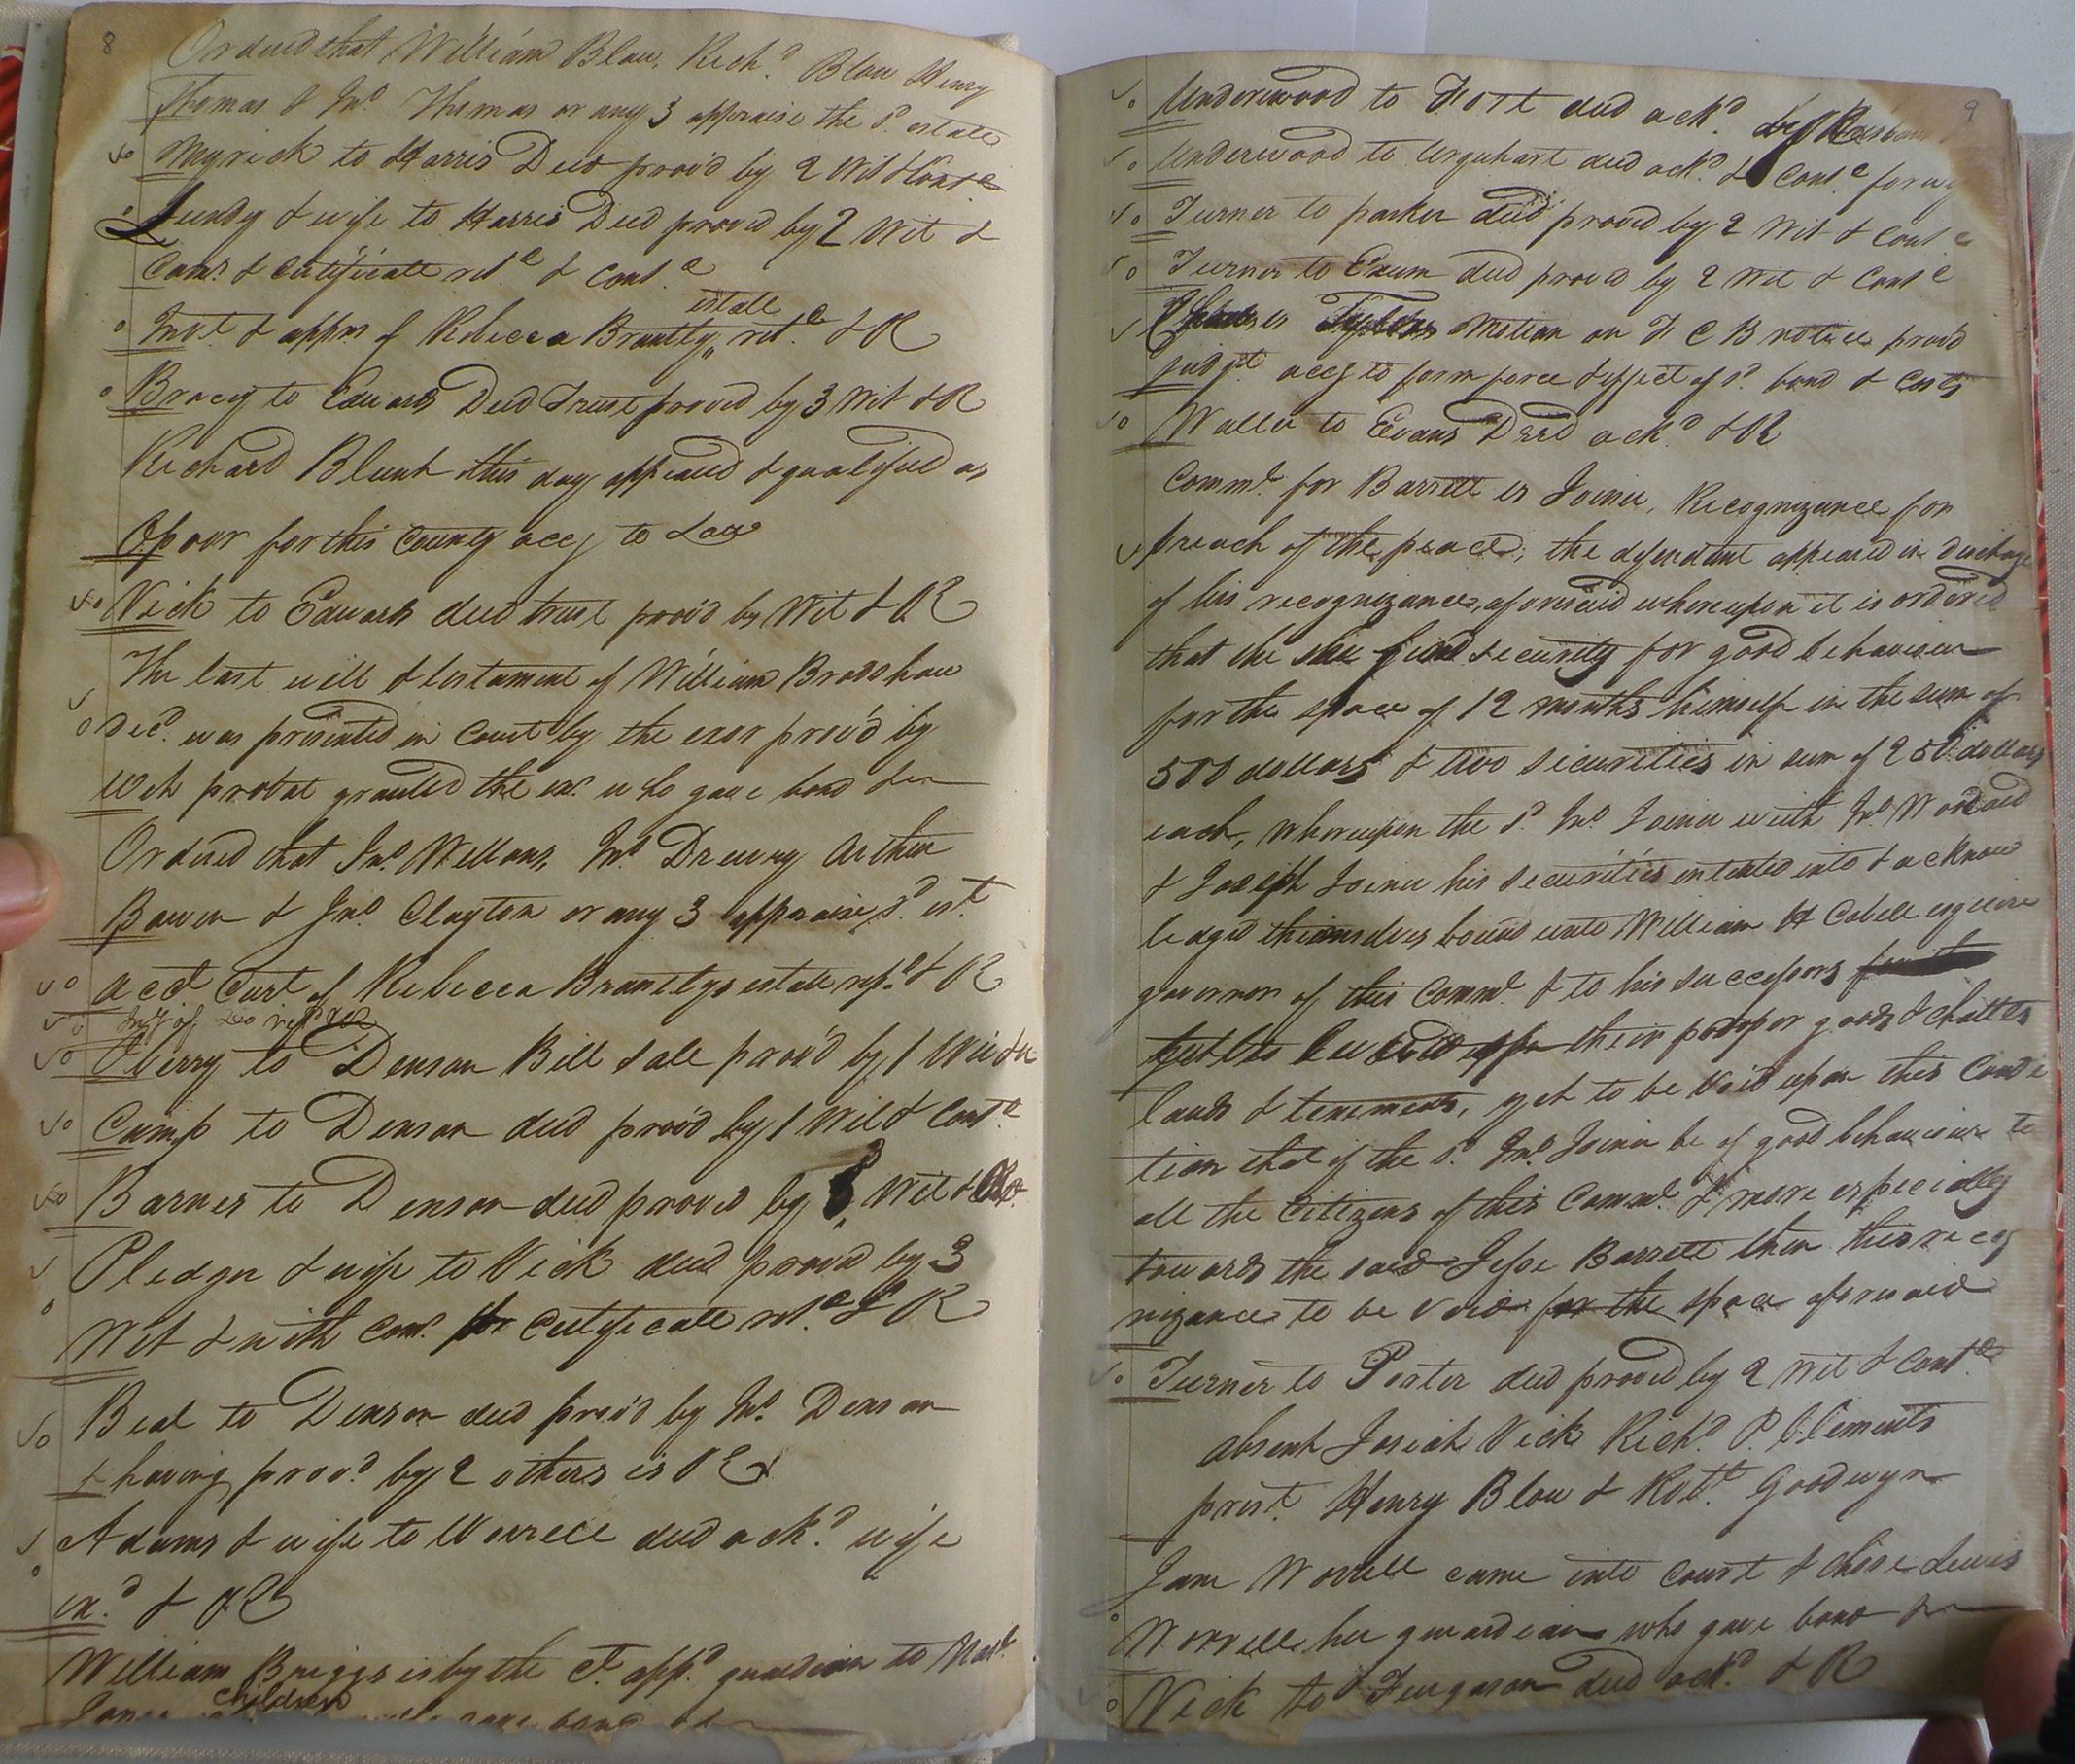 8
Ordered that William Blow, Rich.d Blow Henry
Thomas & Jno. Thomas or any 3 appraise the sd. estate
Myrick to Harris Deed prov'd by 2 Wit & Cont.d
Lundy & wife to Harris Deed proved by 2 Wit &
Com.n & Certificate ret.d & Cont.d
Invt. & appmt of Rebecca Brantly estate ret.d & R
Bracy to Edwards Deed Trust proved by 3 Wit & R
Richard Blunt this day appeared & qualified as
for this County accg to Law
Vick to Edwards deed trust prov'd by Wit & R
The last will & testament of William Bradshaw
Dec.d was presented in Court by the exor prov'd by
Wit probat granted the exr. who gave bond &c
Ordered that Jno. Wellons, Jno. Drewry Arthur
Bowen & Jno. Clayton or any 3 appraise sd. est.t
acct Curt of Rebecca Brantlys estate ret.d & R
Oberry to Denson Bill Sale prov'd by 1 Wit & R
Camp to Denson deed prov'd by 1 Wit & Cont.d
Barnes to Denson deed proved by 3 Wit &
Pledger & wife to Vick deed prov'd by 3
Wit & with Com.n Certificate ret.d & R
Beal to Denson deed prov'd by Jno. Denson
& having prov.d by 2 others is R
Adams & wife to Worrell deed ack.d wife
ex.d & R
William Briggs is by the Ct. app.d guardian to
children
gave bond &c
9
Underwood to deed ack.d
Underwood to Urquhart deed ack.d & Cont.d for
Turner to parker deed proved by 2 Wit & Cont.d
Turner to Exum deed proved by 2 Wit & Cont.d
vs Motion on F C B notice prov'd
judgt. accg to form force & effect of sd. bond & Costs
Waller to Evans Deed ack.d & R
Commth. for Barrett vs Joiner, Recognizance for
breach of the peace; the defendant appeared in discharge
of his recognizance, aforesaid whereupon it is ordered
that he find security for good behaviour
for the space of 12 months himself in the sum of
500 dollars & two securities in sum of 250 dollars
each, whereupon the sd. Jno. Joiner with Jno. Woodard
& Joseph Joiner his securities entered into & acknow
ledged themselves bound unto William H Cabell esquire
governor of this Commth. & to his successors
their proper goods & chattles
lands & tenements, yet to be void upon this Condi
tion that if the sd. Jno. Joiner be of good behaviour to
all the Citizens of this Commth. & more especially
towards the said Jesse Barrett then this recog
nizance to be void for the space aforesaid
Turner to Porter deed proved by 2 Wit & Cont.d
absent Josiah Vick Rich.d P. Clements
pres.t Henry Blow & Robt. Goodwyn
Jane Worrell came into Court & chose Lewis
Worrell her guardian who gave bond &c
Vick to Ferguson deed ack.d & R